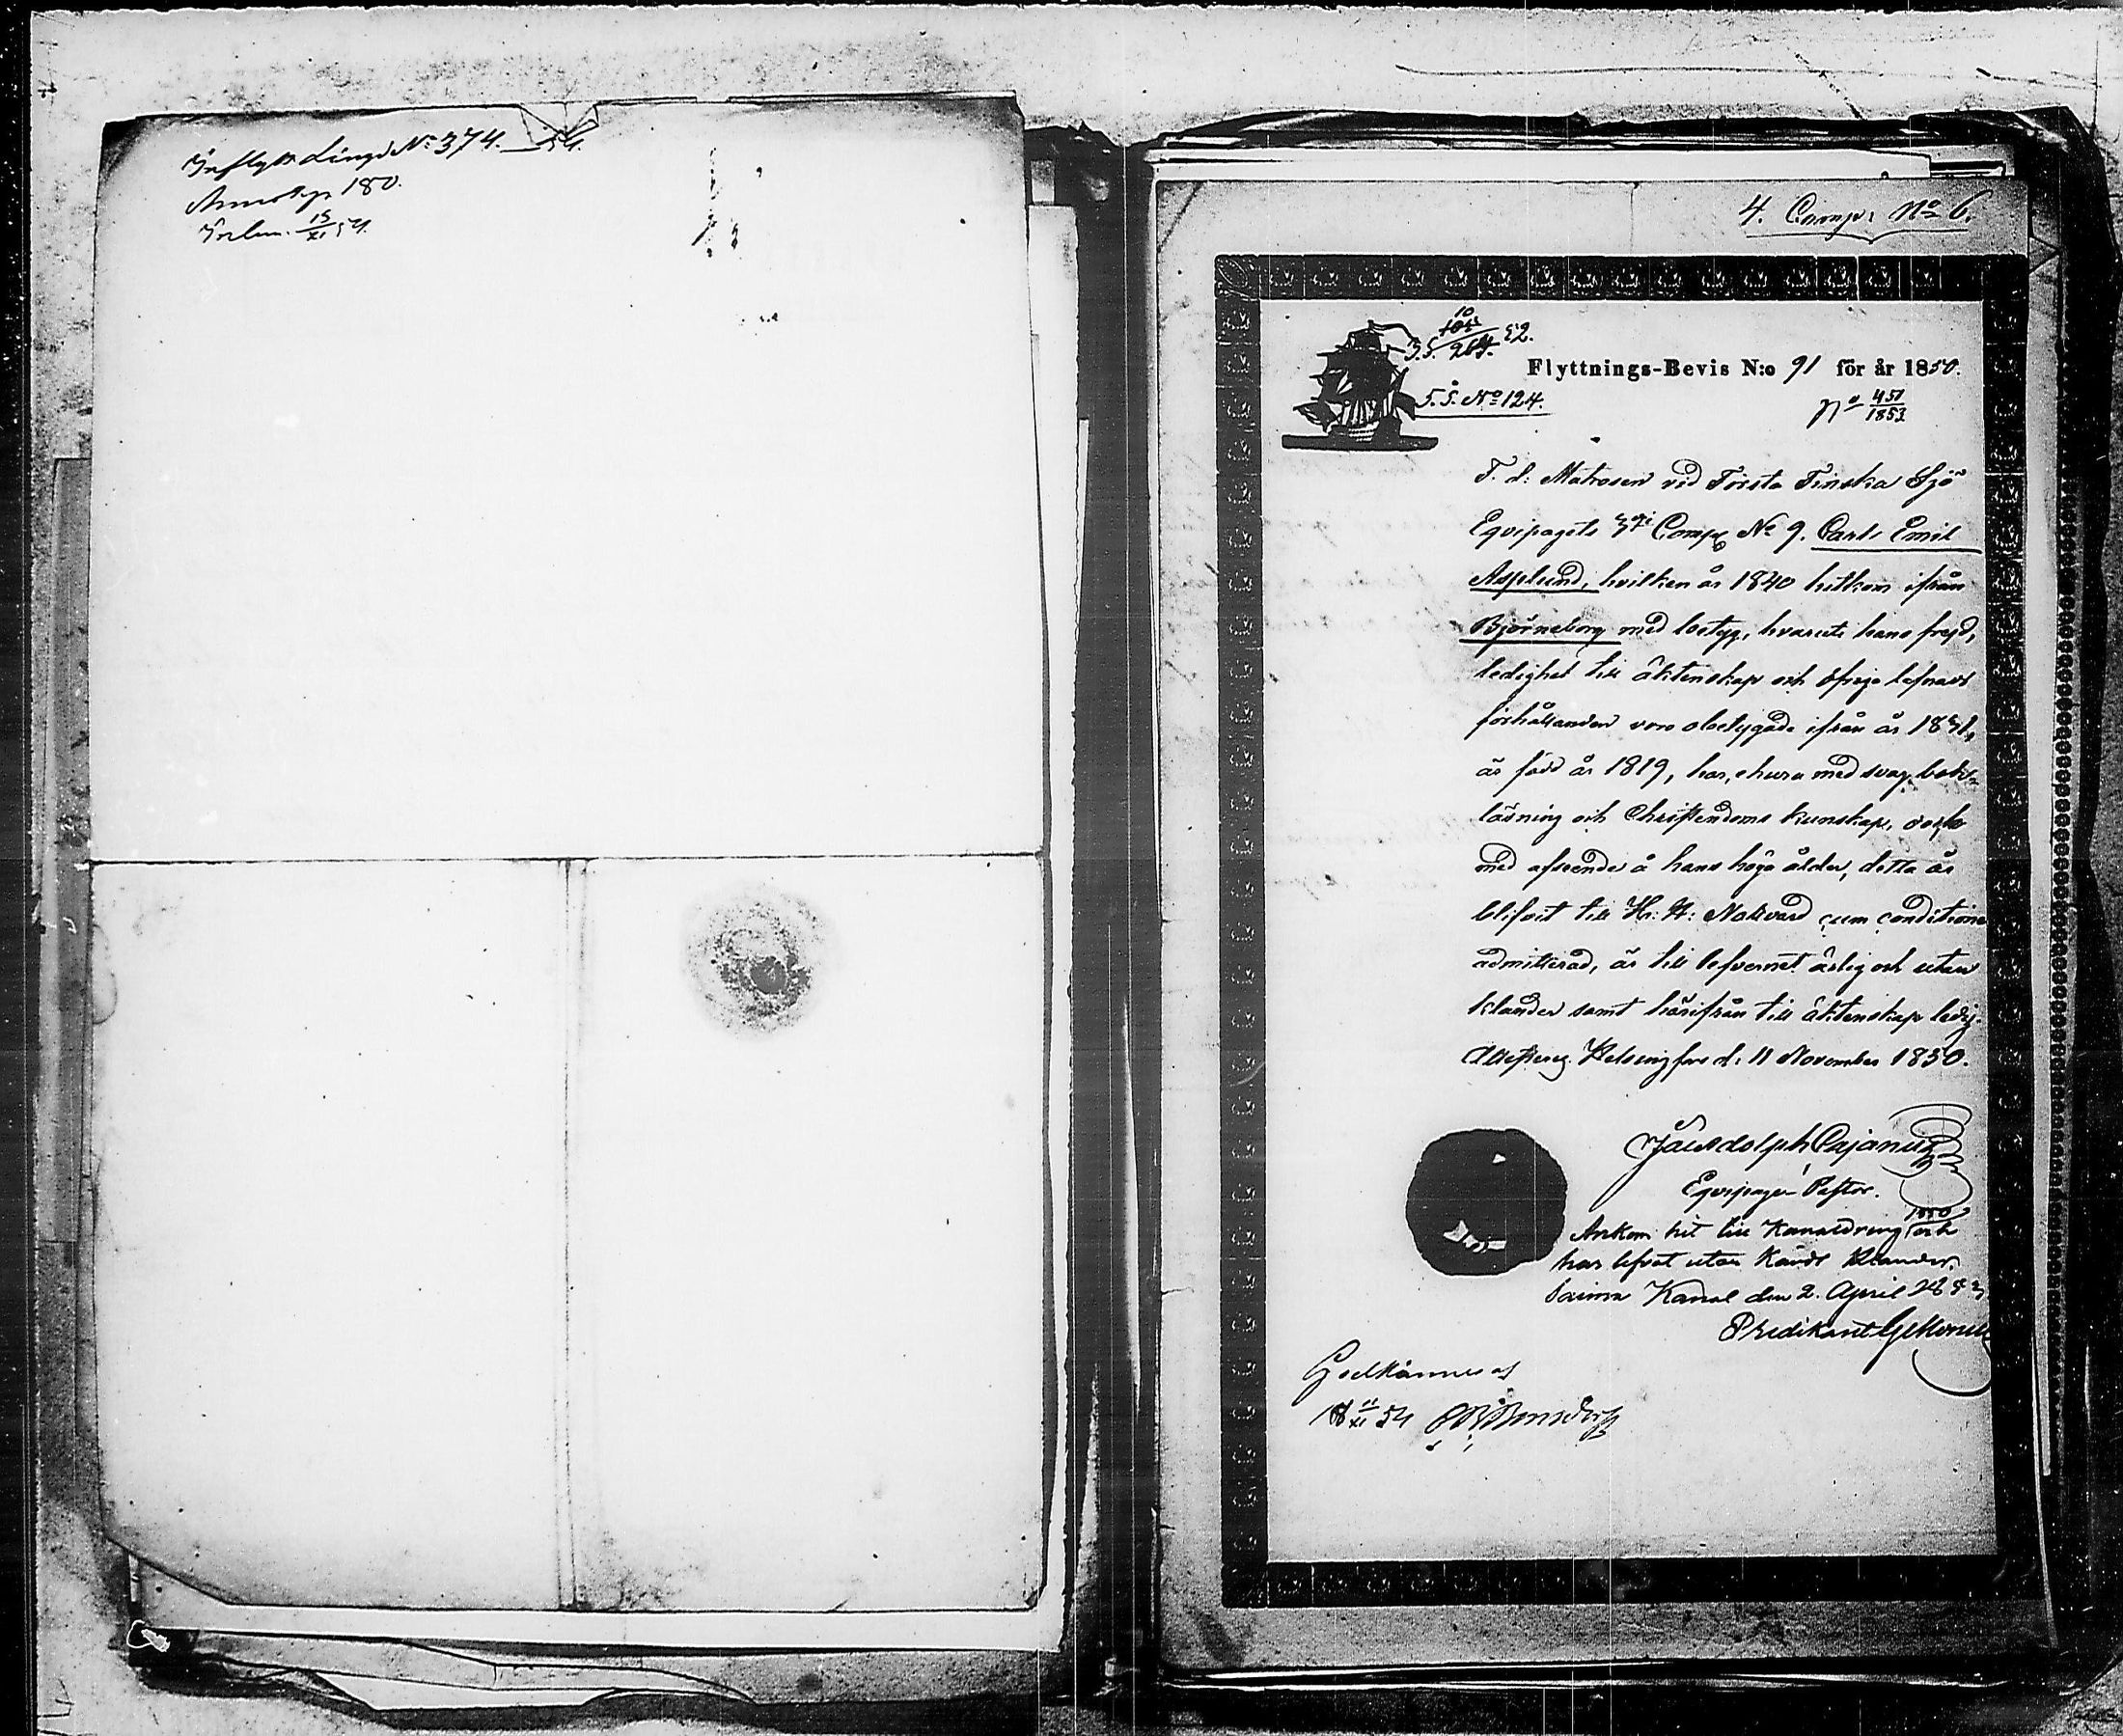 Inflytt Längd No 374. 54.
180.
Inlem. 15/XI 54.
4. Comp: No 6.
10
S.S. 264. 52.
Flyttnings-Bevis N:o 91 för år 1850.
S.S. No 124.
No 451/1853
F. d: Matrosen vid Första Finska Sjö
Equipagets 3dje Comp No 9. Carl Emil
Asplund, hvilken år 1840 hitkom ifrån
Björneborg med betyg, hvaruti hans frejd,
ledighet till äktenskap och öfrige lefnads
förhållanden voro obetygade ifrån år 1831,
är född år 1819, har, ehuru med svag bok-
läsning och Christendoms kunskap, dock
med afseende å hans höga ålder, detta år
blifvit till H: H: Nattvard cum conditione
admitterad, är till lefvernet ärlig och utan
klander samt härifrån till äktenskap ledig.
Attesterar Helsingfors d: 11 November 1850.
Adolph Cajanus
Equipage-Pastor.
Ankom hit till Kanaldrung 1850 och
har lefvat utan kändt klander.
Saima Kanal den 2. April 1853
Predikant
Godkännes af
18 11/XI 54